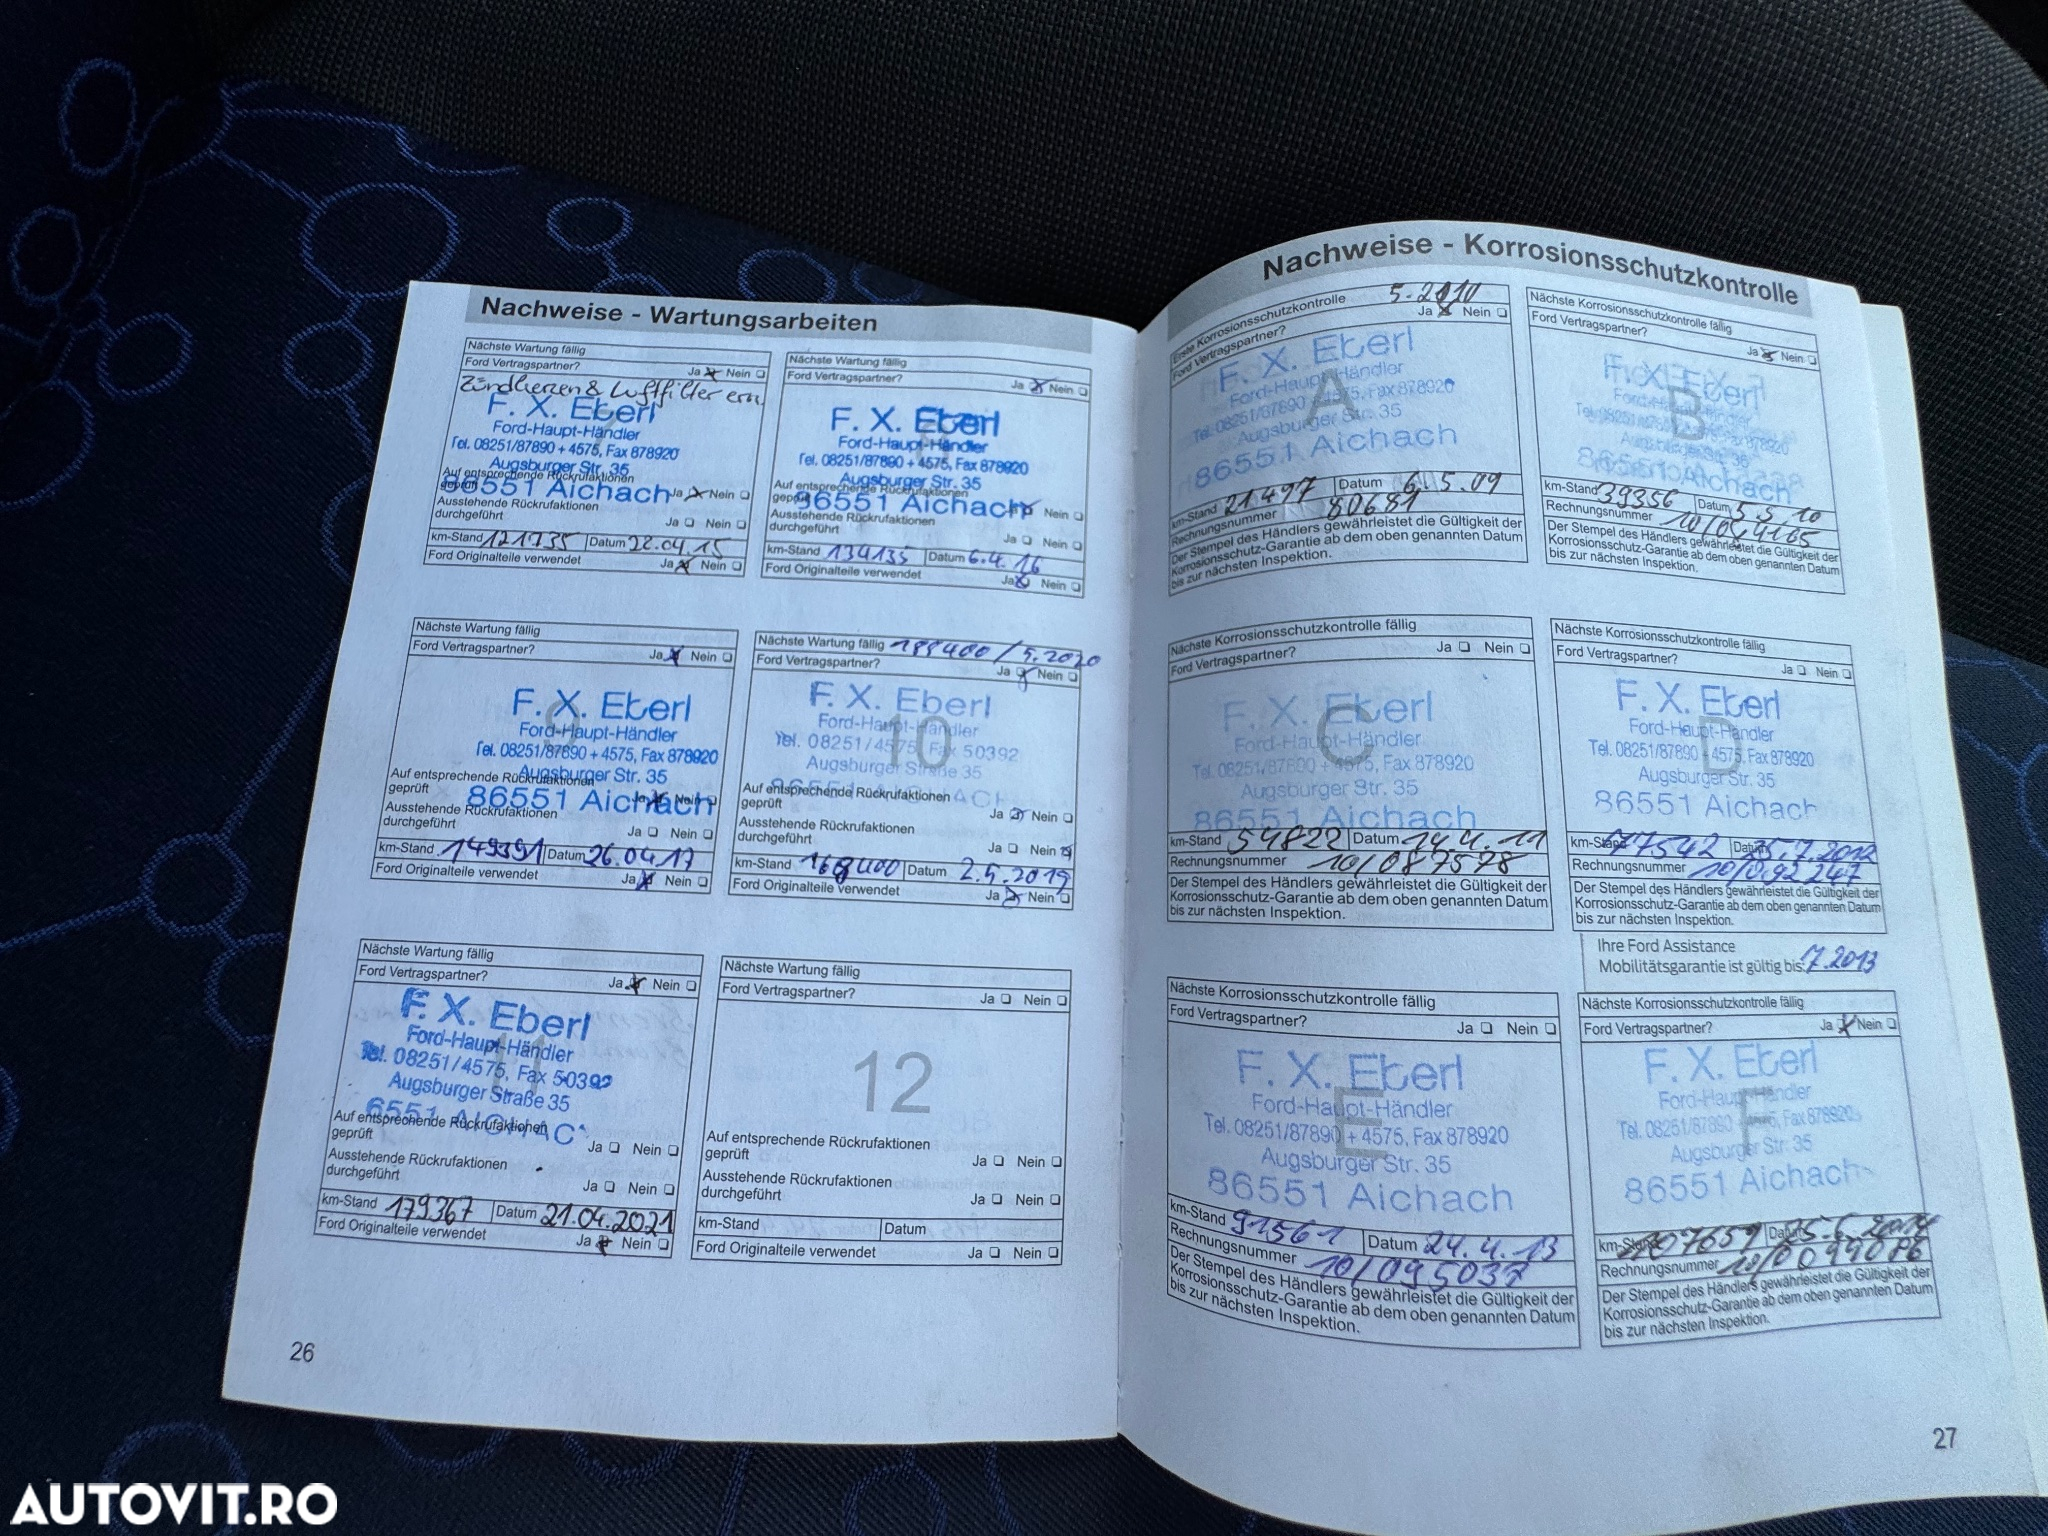 Nachweise - Wartungsarbeiten
Nächste Wartung fällig
Ford Vertragspartner?
Ja Nein
Zündkerzen & Luftfilter ern.
F. X. Eberl
Ford-Haupt-Händler
Tel. 08251/87890 + 4575, Fax 878920
Augsburger Str. 35
86551 Aichach
Auf entsprechende Rückrufaktionen
geprüft Ja Nein
Ausstehende Rückrufaktionen
durchgeführt Ja Nein
km-Stand 121735 Datum 22.04.15
Ford Originalteile verwendet Ja Nein
Nächste Wartung fällig
Ford Vertragspartner?
Ja Nein
F. X. Eberl
Ford-Haupt-Händler
Tel. 08251/87890 + 4575, Fax 878920
Augsburger Str. 35
86551 Aichach
Auf entsprechende Rückrufaktionen
geprüft Nein
Ausstehende Rückrufaktionen
durchgeführt Ja Nein
km-Stand 134135 Datum 6.4.16
Ford Originalteile verwendet Ja Nein
Nächste Wartung fällig
Ford Vertragspartner? Ja Nein
9
F. X. Eberl
Ford-Haupt-Händler
Tel. 08251/87890 + 4575, Fax 878920
Augsburger Str. 35
86551 Aichach
Auf entsprechende Rückrufaktionen
geprüft Ja Nein
Ausstehende Rückrufaktionen
durchgeführt Ja Nein
km-Stand 149391 Datum 26.04.17
Ford Originalteile verwendet Ja Nein
Nächste Wartung fällig 188400/5.2020
Ford Vertragspartner? Ja Nein
10
F. X. Eberl
Ford-Haupt-Händler
Tel. 08251/4575, Fax 50392
Augsburger Straße 35
Auf entsprechende Rückrufaktionen
geprüft Ja Nein
Ausstehende Rückrufaktionen
durchgeführt Ja Nein
km-Stand 168400 Datum 2.5.2019
Ford Originalteile verwendet Ja Nein
Nächste Wartung fällig
Ford Vertragspartner? Ja Nein
11
F. X. Eberl
Ford-Haupt-Händler
Tel. 08251/4575, Fax 50392
Augsburger Straße 35
6551 AICHAC
Auf entsprechende Rückrufaktionen
geprüft Ja Nein
Ausstehende Rückrufaktionen
durchgeführt Ja Nein
km-Stand 179367 Datum 21.04.2021
Ford Originalteile verwendet Ja Nein
Nächste Wartung fällig
Ford Vertragspartner? Ja Nein
12
Auf entsprechende Rückrufaktionen
geprüft Ja Nein
Ausstehende Rückrufaktionen
durchgeführt Ja Nein
km-Stand Datum
Ford Originalteile verwendet Ja Nein
26
Nachweise - Korrosionsschutzkontrolle
Erste Korrosionsschutzkontrolle 5.2010
Ford Vertragspartner? Ja Nein
A
F. X. Eberl
Ford-Haupt-Händler
Tel. 08251/87890 + 4575, Fax 878920
Augsburger Str. 35
86551 Aichach
km-Stand 21497 Datum 6.5.09
Rechnungsnummer 80681
Der Stempel des Händlers gewährleistet die Gültigkeit der
Korrosionsschutz-Garantie ab dem oben genannten Datum
bis zur nächsten Inspektion.
Nächste Korrosionsschutzkontrolle fällig
Ford Vertragspartner? Ja Nein
B
km-Stand 39356 Datum 5.5.10
Rechnungsnummer
Der Stempel des Händlers gewährleistet die Gültigkeit der
Korrosionsschutz-Garantie ab dem oben genannten Datum
bis zur nächsten Inspektion.
Nächste Korrosionsschutzkontrolle fällig
Ford Vertragspartner? Ja Nein
C
F. X. Eberl
Ford-Haupt-Händler
Tel. 08251/87890 + 4575, Fax 878920
Augsburger Str. 35
86551 Aichach
km-Stand 54822 Datum 14.4.11
Rechnungsnummer 10/087578
Der Stempel des Händlers gewährleistet die Gültigkeit der
Korrosionsschutz-Garantie ab dem oben genannten Datum
bis zur nächsten Inspektion.
Nächste Korrosionsschutzkontrolle fällig
Ford Vertragspartner? Ja Nein
D
F. X. Eberl
Ford-Haupt-Händler
Tel. 08251/87890 + 4575, Fax 878920
Augsburger Str. 35
86551 Aichach
km-Stand 77542 Datum 25.7.2012
Rechnungsnummer 10/092247
Der Stempel des Händlers gewährleistet die Gültigkeit der
Korrosionsschutz-Garantie ab dem oben genannten Datum
bis zur nächsten Inspektion.
Ihre Ford Assistance
Mobilitätsgarantie ist gültig bis: 7.2013
Nächste Korrosionsschutzkontrolle fällig
Ford Vertragspartner? Ja Nein
E
F. X. Eberl
Ford-Haupt-Händler
Tel. 08251/87890 + 4575, Fax 878920
Augsburger Str. 35
86551 Aichach
km-Stand 91561 Datum 24.4.13
Rechnungsnummer 10/095037
Der Stempel des Händlers gewährleistet die Gültigkeit der
Korrosionsschutz-Garantie ab dem oben genannten Datum
bis zur nächsten Inspektion.
Nächste Korrosionsschutzkontrolle fällig
Ford Vertragspartner? Ja Nein
F
F. X. Eberl
Ford-Haupt-Händler
Tel. 08251/87890 + 4575, Fax 878920
Augsburger Str. 35
86551 Aichach
km-Stand 107659 Datum 25.6.2014
Rechnungsnummer
Der Stempel des Händlers gewährleistet die Gültigkeit der
Korrosionsschutz-Garantie ab dem oben genannten Datum
bis zur nächsten Inspektion.
27
AUTOVIT.RO